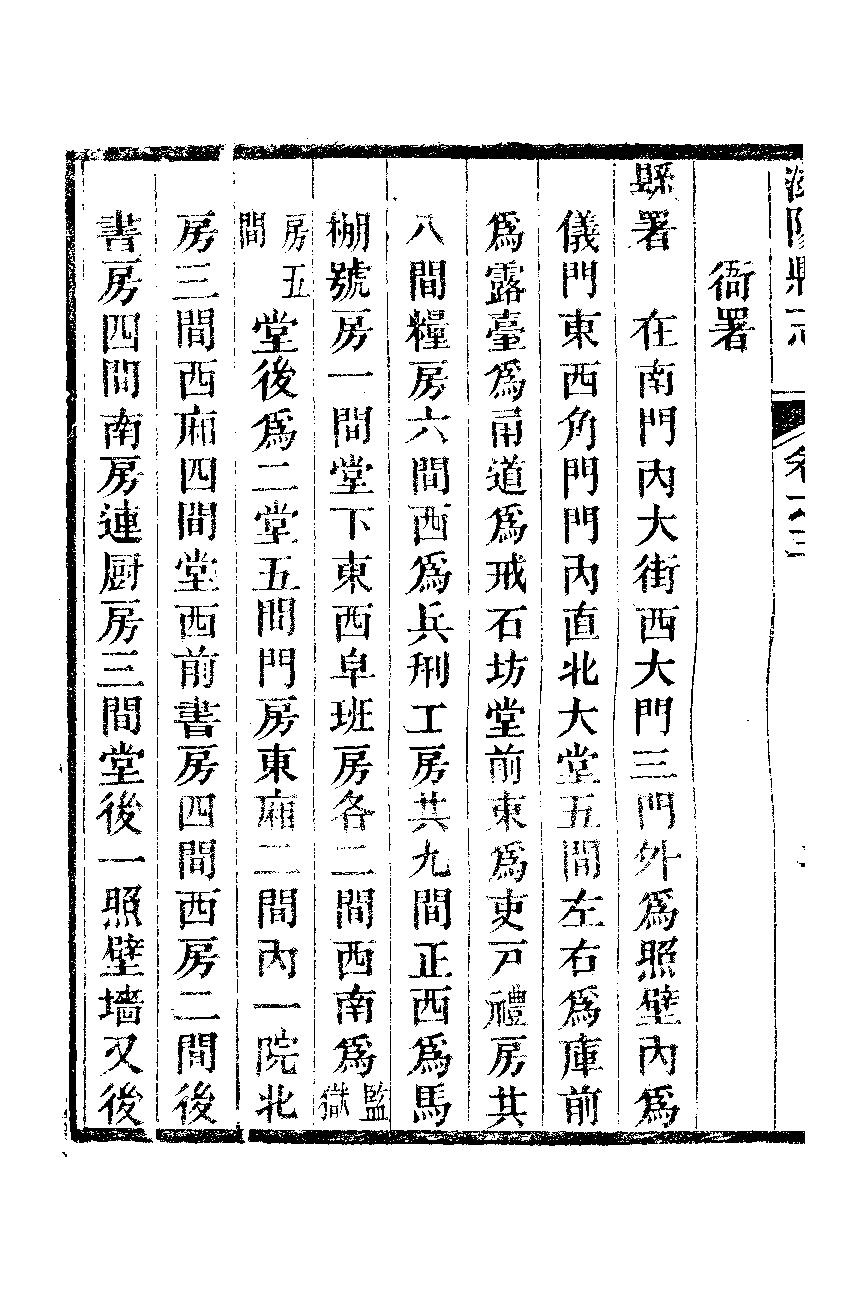 陽縣志 卷之三
衙署
縣署 在南門內大街西大門三門外爲照壁內爲
儀門東西角門門內直北大堂五間左右爲庫前
爲露臺爲甬道爲戒石坊堂前東爲吏戸禮房共
八間糧房六間西爲兵刑工房共九間正西爲馬
棚號房一間堂下東西皁班房各二間西南爲監獄
房五間堂後爲二堂五間門房東廂二間內一院北
房三間西廂四間堂西前書房四間西房二間後
書房四間南房連厨房三間堂後一照壁墻又後